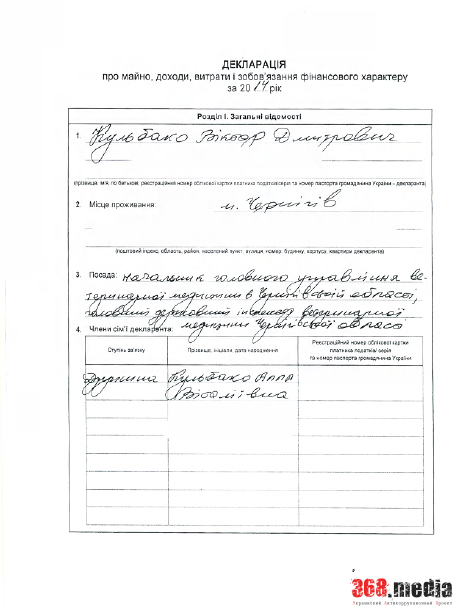 ДЕКЛАРАЦІЯ
про майно, доходи, витрати і зобов'язання фінансового характеру
за 2014 рік
Розділ І. Загальні відомості
1. Кульбако Віктор Дмитрович
(прізвище, ім'я, по батькові, реєстраційний номер облікової картки платника податків/серія та номер паспорта громадянина України - декларанта)
2. Місце проживання: м. Чернігів
(поштовий індекс, область, район, населений пункт, вулиця, номер: будинку, корпуса, квартири декларанта)
3. Посада: начальник головного управління ве-
теринарної медицини в Чернігівській області,
головний державний інспектор ветеринарної
медицини Чернігівської області
4. Члени сім'ї декларанта:
Ступінь зв'язку
Прізвище, ініціали, дата народження
Реєстраційний номер облікової картки
платника податків/ серія
та номер паспорта громадянина України
Дружина Кульбако Алла
Віталіївна
368.media
Украинский Антикоррупционный Проект